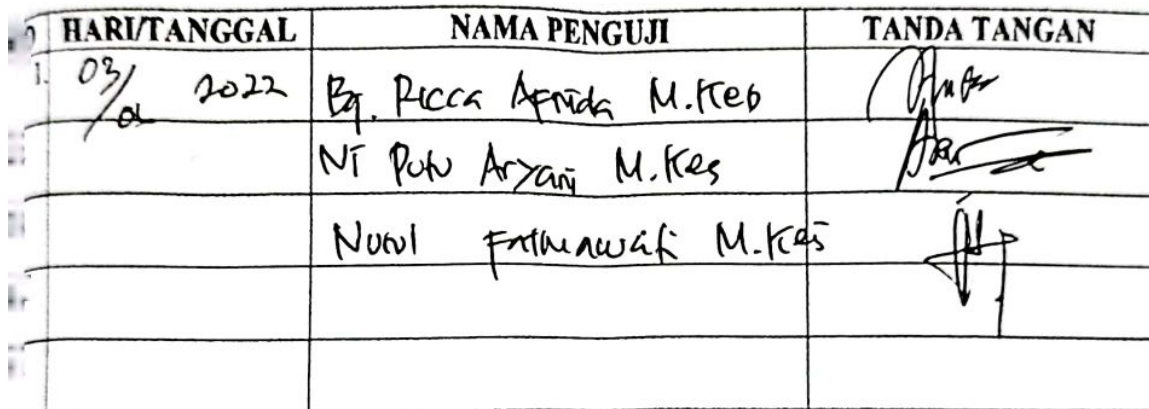 HARI/TANGGAL NAMA PENGUJI TANDA TANGAN
1. 03/ 2022 Bq. Ricca Afrida M.Keb
Ni Putu Aryani M.Kes
Nurul Fatmawati M.Kes